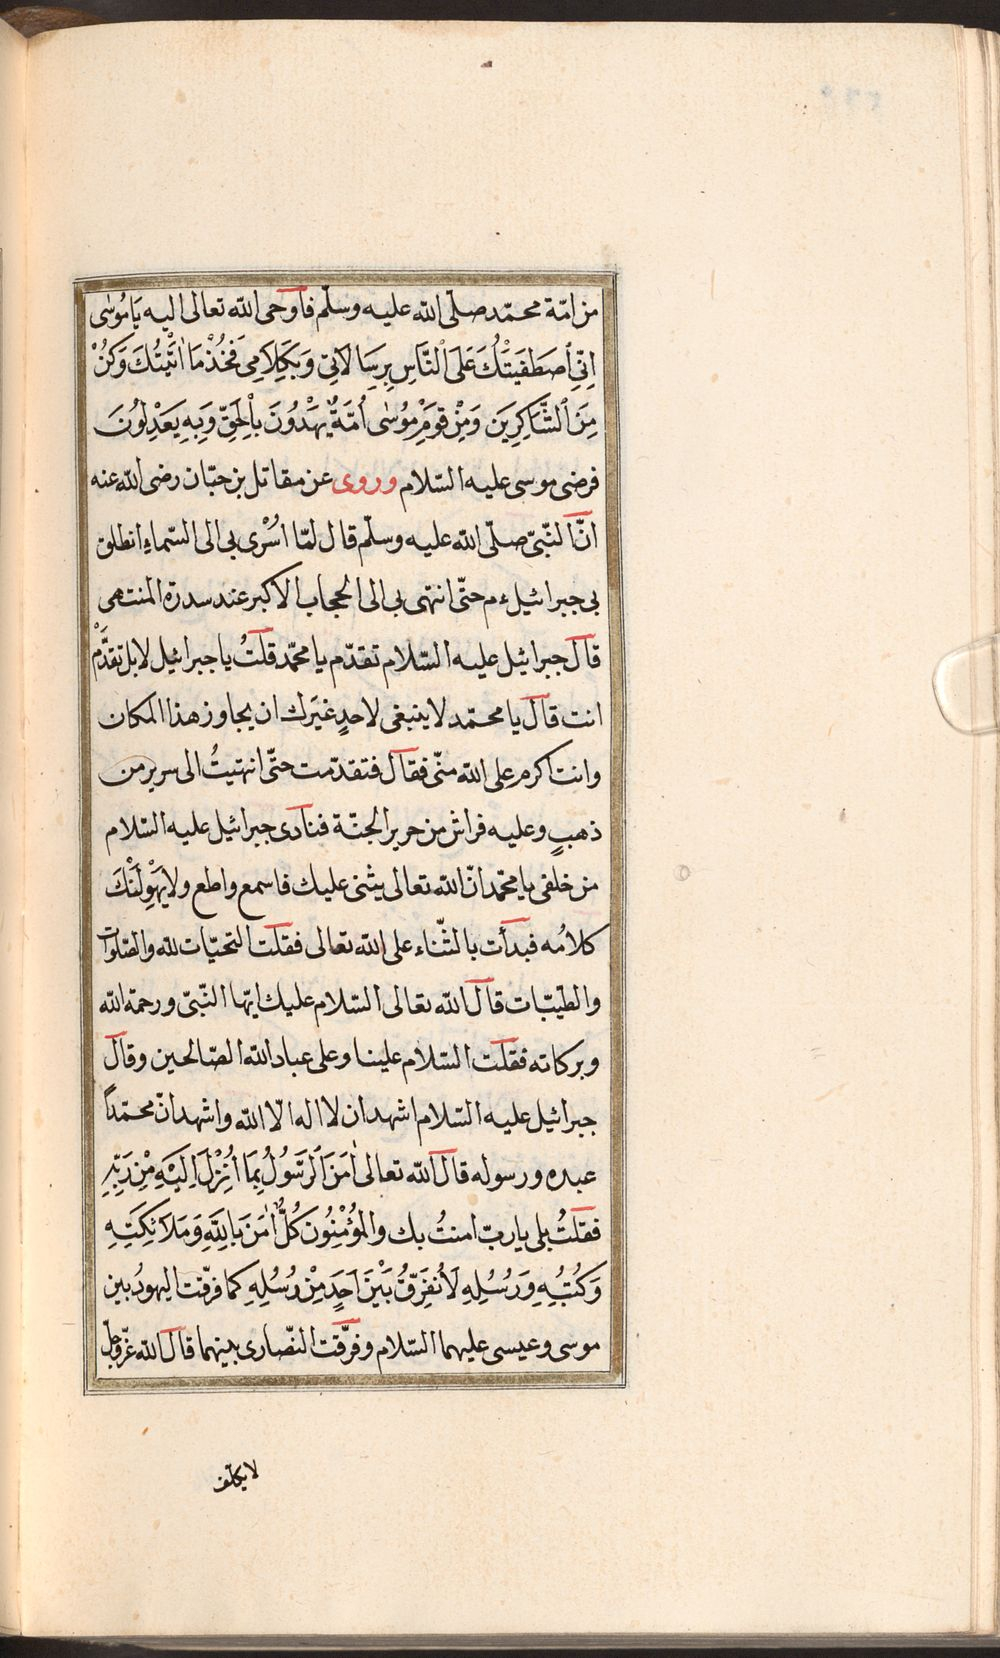 من امّة محمّد صلّى الله عليه وسلّم فاوحى الله تعالى اليه يَا مُوسٰى
اِنِّي ٱصْطَفَيْتُكَ عَلَى ٱلنَّاسِ بِرِسَالَاتِي وَبِكَلَامِي فَخُذْ مَا اٰتَيْتُكَ وَكُنْ
مِنَ ٱلشَّاكِرِينَ وَمِنْ قَوْمِ مُوسٰى اُمَّةٌ يَهْدُونَ بِالْحَقِّ وَبِهِ يَعْدِلُونَ
فرضى موسى عليه السّلام وروى عن مقاتل بن حبّان رضى الله عنه
انّ النّبىّ صلّى الله عليه وسلّم قال لمّا اُسْرى بى الى السّماءِ انطلق
بى جبرائيل ءم حتّى انتهى بى الى الحجاب الاكبر عند سدرة المنتهى
قال جبرائيل عليه السّلام تقدّم يا محمّد قلتُ يا جبرائيل لا بل تقدَّمْ
انت قال يا محمّد لا ينبغى لاحدٍ غيرك ان يجاوز هذا المكان
وانت اكرم على الله منّى فقال فتقدّمت حتّى انتهيتُ الى سرير من
ذهبٍ وعليه فراش من حرير الجنّة فنادى جبرائيل عليه السّلام
من خلفى يا محمّد انّ الله تعالى يثنى عليك فاسمع واطع ولا يَهْوِلَنْكَ
كلامُه فبدأت بالثّناء على الله تعالى فقلت التحيّات لله والصّلوات
والطّيّبات قال الله تعالى السّلام عليك ايّها النّبىّ ورحمة الله
وبركاته فقلت السّلام علينا وعلى عباد الله الصّالحين وقال
جبرائيل عليه السّلام اشهد ان لا اله الّا الله واشهد انّ محمّداً
عبده ورسوله قال الله تعالى اٰمَنَ ٱلرَّسُولُ بِمَا اُنْزِلَ اِلَيْهِ مِنْ رَبِّهِ
فقلتُ بلى يا ربّ امنتُ بك والْمُؤْمِنُون كُلٌّ اٰمَنَ بِاللّٰهِ وَمَلَائِكَتِهِ
وَكُتُبِهِ وَرُسُلِهِ لَا نُفَرِّقُ بَيْنَ اَحَدٍ مِنْ رُسُلِهِ كما فرّقت اليهودُ بين
موسى وعيسى عليهما السّلام وفرَّقت النّصارى بينهما قال الله عزّ وجلّ
لا يكلّف